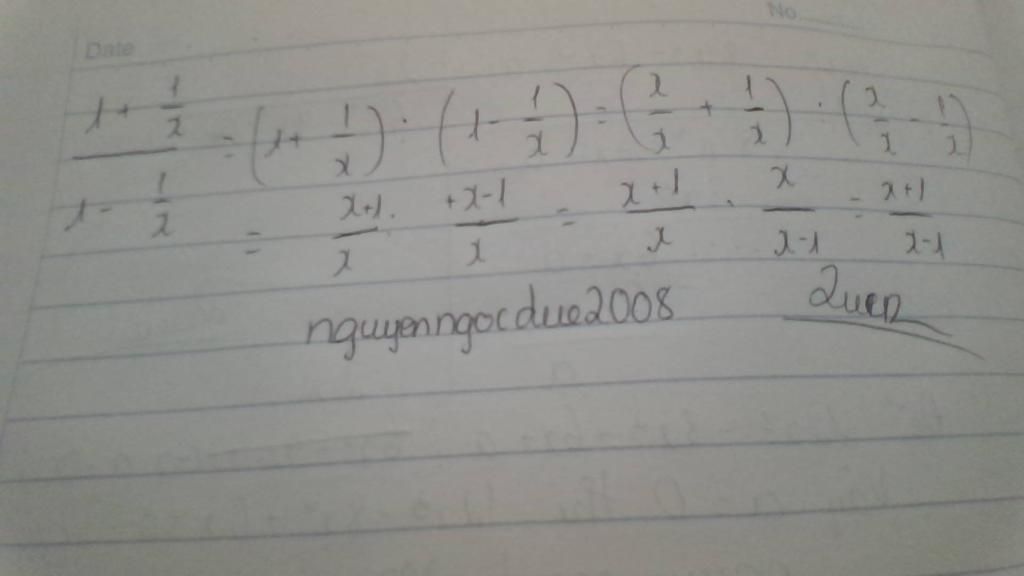 No.
Date
(1 + 1/x)/(1 - 1/x) = (1 + 1/x) · (1 - 1/x) = (x/x + 1/x) · (x/x - 1/x)
= x+1/x · +x-1/x = x+1/x · x/x-1 = x+1/x-1
nguyenngocdue2008